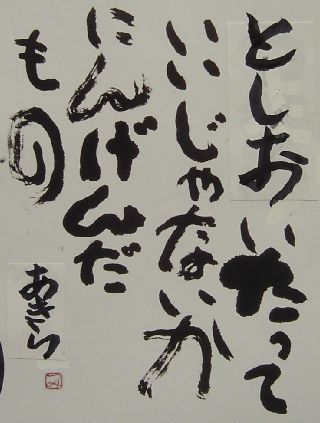 としおいたって
いいじゃないか
にんげんだ
もの
あきら